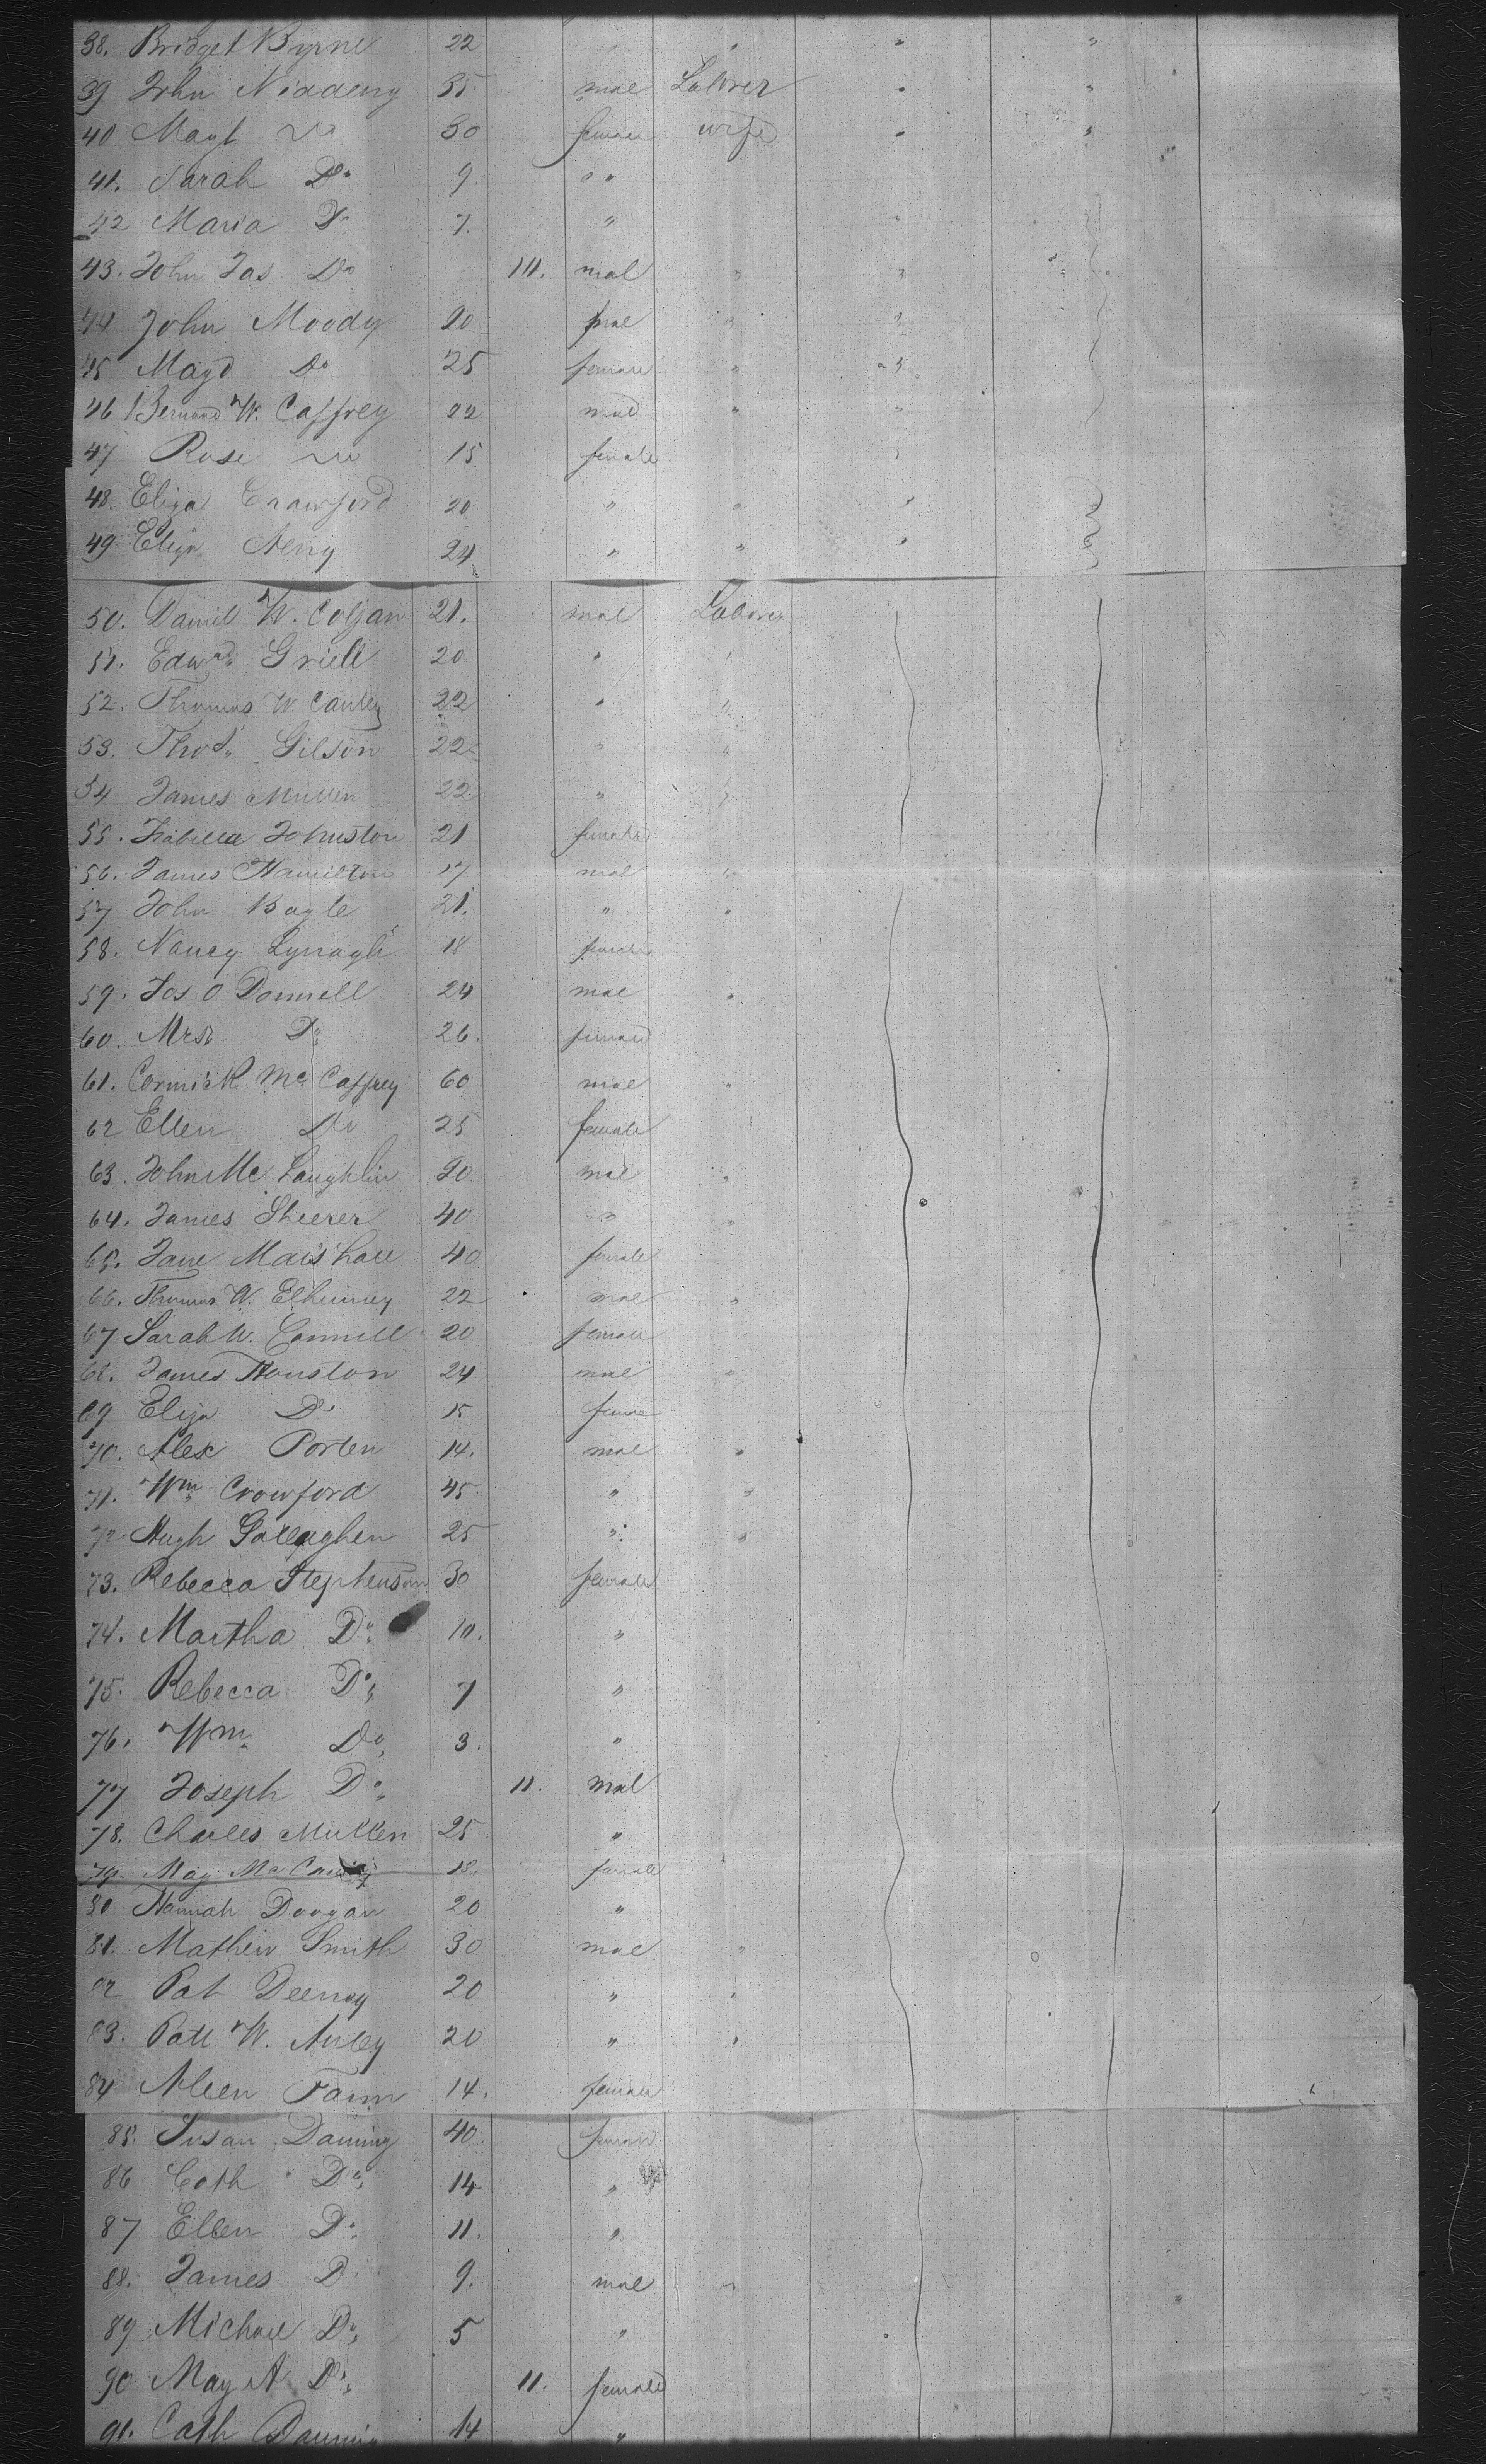 38. Bridget Byrne 22 " " " "
39 John Niddeny 35 male Laborer " "
40 Magt Do 30 female wife " "
41. Sarah Do 9. " "
42 Maria Do 7. "
43. John Jas Do 111. mal " "
44 John Moody 20 male " "
45 Magt Do 25 female " "
46 Bernard W. Caffrey 22 male " "
47 Rose Do 15 female "
48. Eliza Crawford 20 " " "
49 Eliza 24 " " "
50. Daniel W. Colgan 21. male Laborer
51. Edwd. Griell 20 " "
52. Thomas W Cauley 22 " "
53. Thos. Gilson 22 " "
54 James Mullen 22 " "
55. Isabella Johnston 21 female
56. James Hamilton 17 male "
57 John Bogle 21. " "
58. Nancy Lynagh 18 female
59. Jos O Donnell 24 male "
60. Mrs. Do 26. female
61. Cormick Mc. Caffrey 60 male "
62 Ellen Do 25 female
63. John Mc Laughlin 20 male "
64. James Sheerer 40 " "
65. Jane Marshall 40 female
66. Thomas W. Elhinney 22 male "
67 Sarah W. Connell 20 female
68. James Houston 24 male "
69 Eliza Do 15 female
70. Alex Porten 14. male "
71. Wm. Crowford 45. " "
72 Hugh Gallaghen 25 " "
73. Rebecca Stephenson 30 female
74. Martha Do. 10. "
75. Rebecca Do. 7 "
76. Wm. Do. 3. "
77 Joseph Do. 11. mal
78. Charles Mullen 25 "
79. May Mc 18. female
80 Hannah Doogan 20 "
81. Mathew Smith 30 male "
82 Pat Deeney 20 " "
83. Patt W. Auley 20 " "
84 Aleen Fann 14. female
85. Susan Daming 40. female
86 Cath Do. 14 "
87 Ellen Do. 11. "
88. James Do 9. male "
89 Michael Do. 5 "
90 May A Do. 11. female
91. Cath 14 "